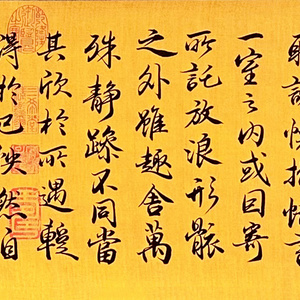 取諸懷抱悟言
一室之内或因寄
所託放浪形骸
之外雖趣舍萬
殊静躁不同當
其欣於所遇蹔
得於己怏然自